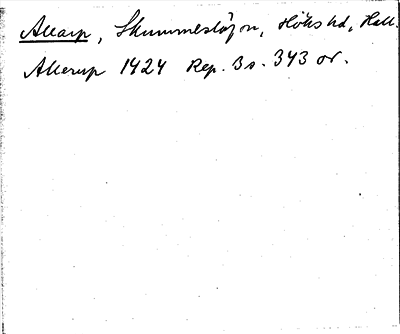 Allarp, Skummeslövs sn, Höks hd, Hall.
Allerup 1424 Rep. 3 s. 343 or.